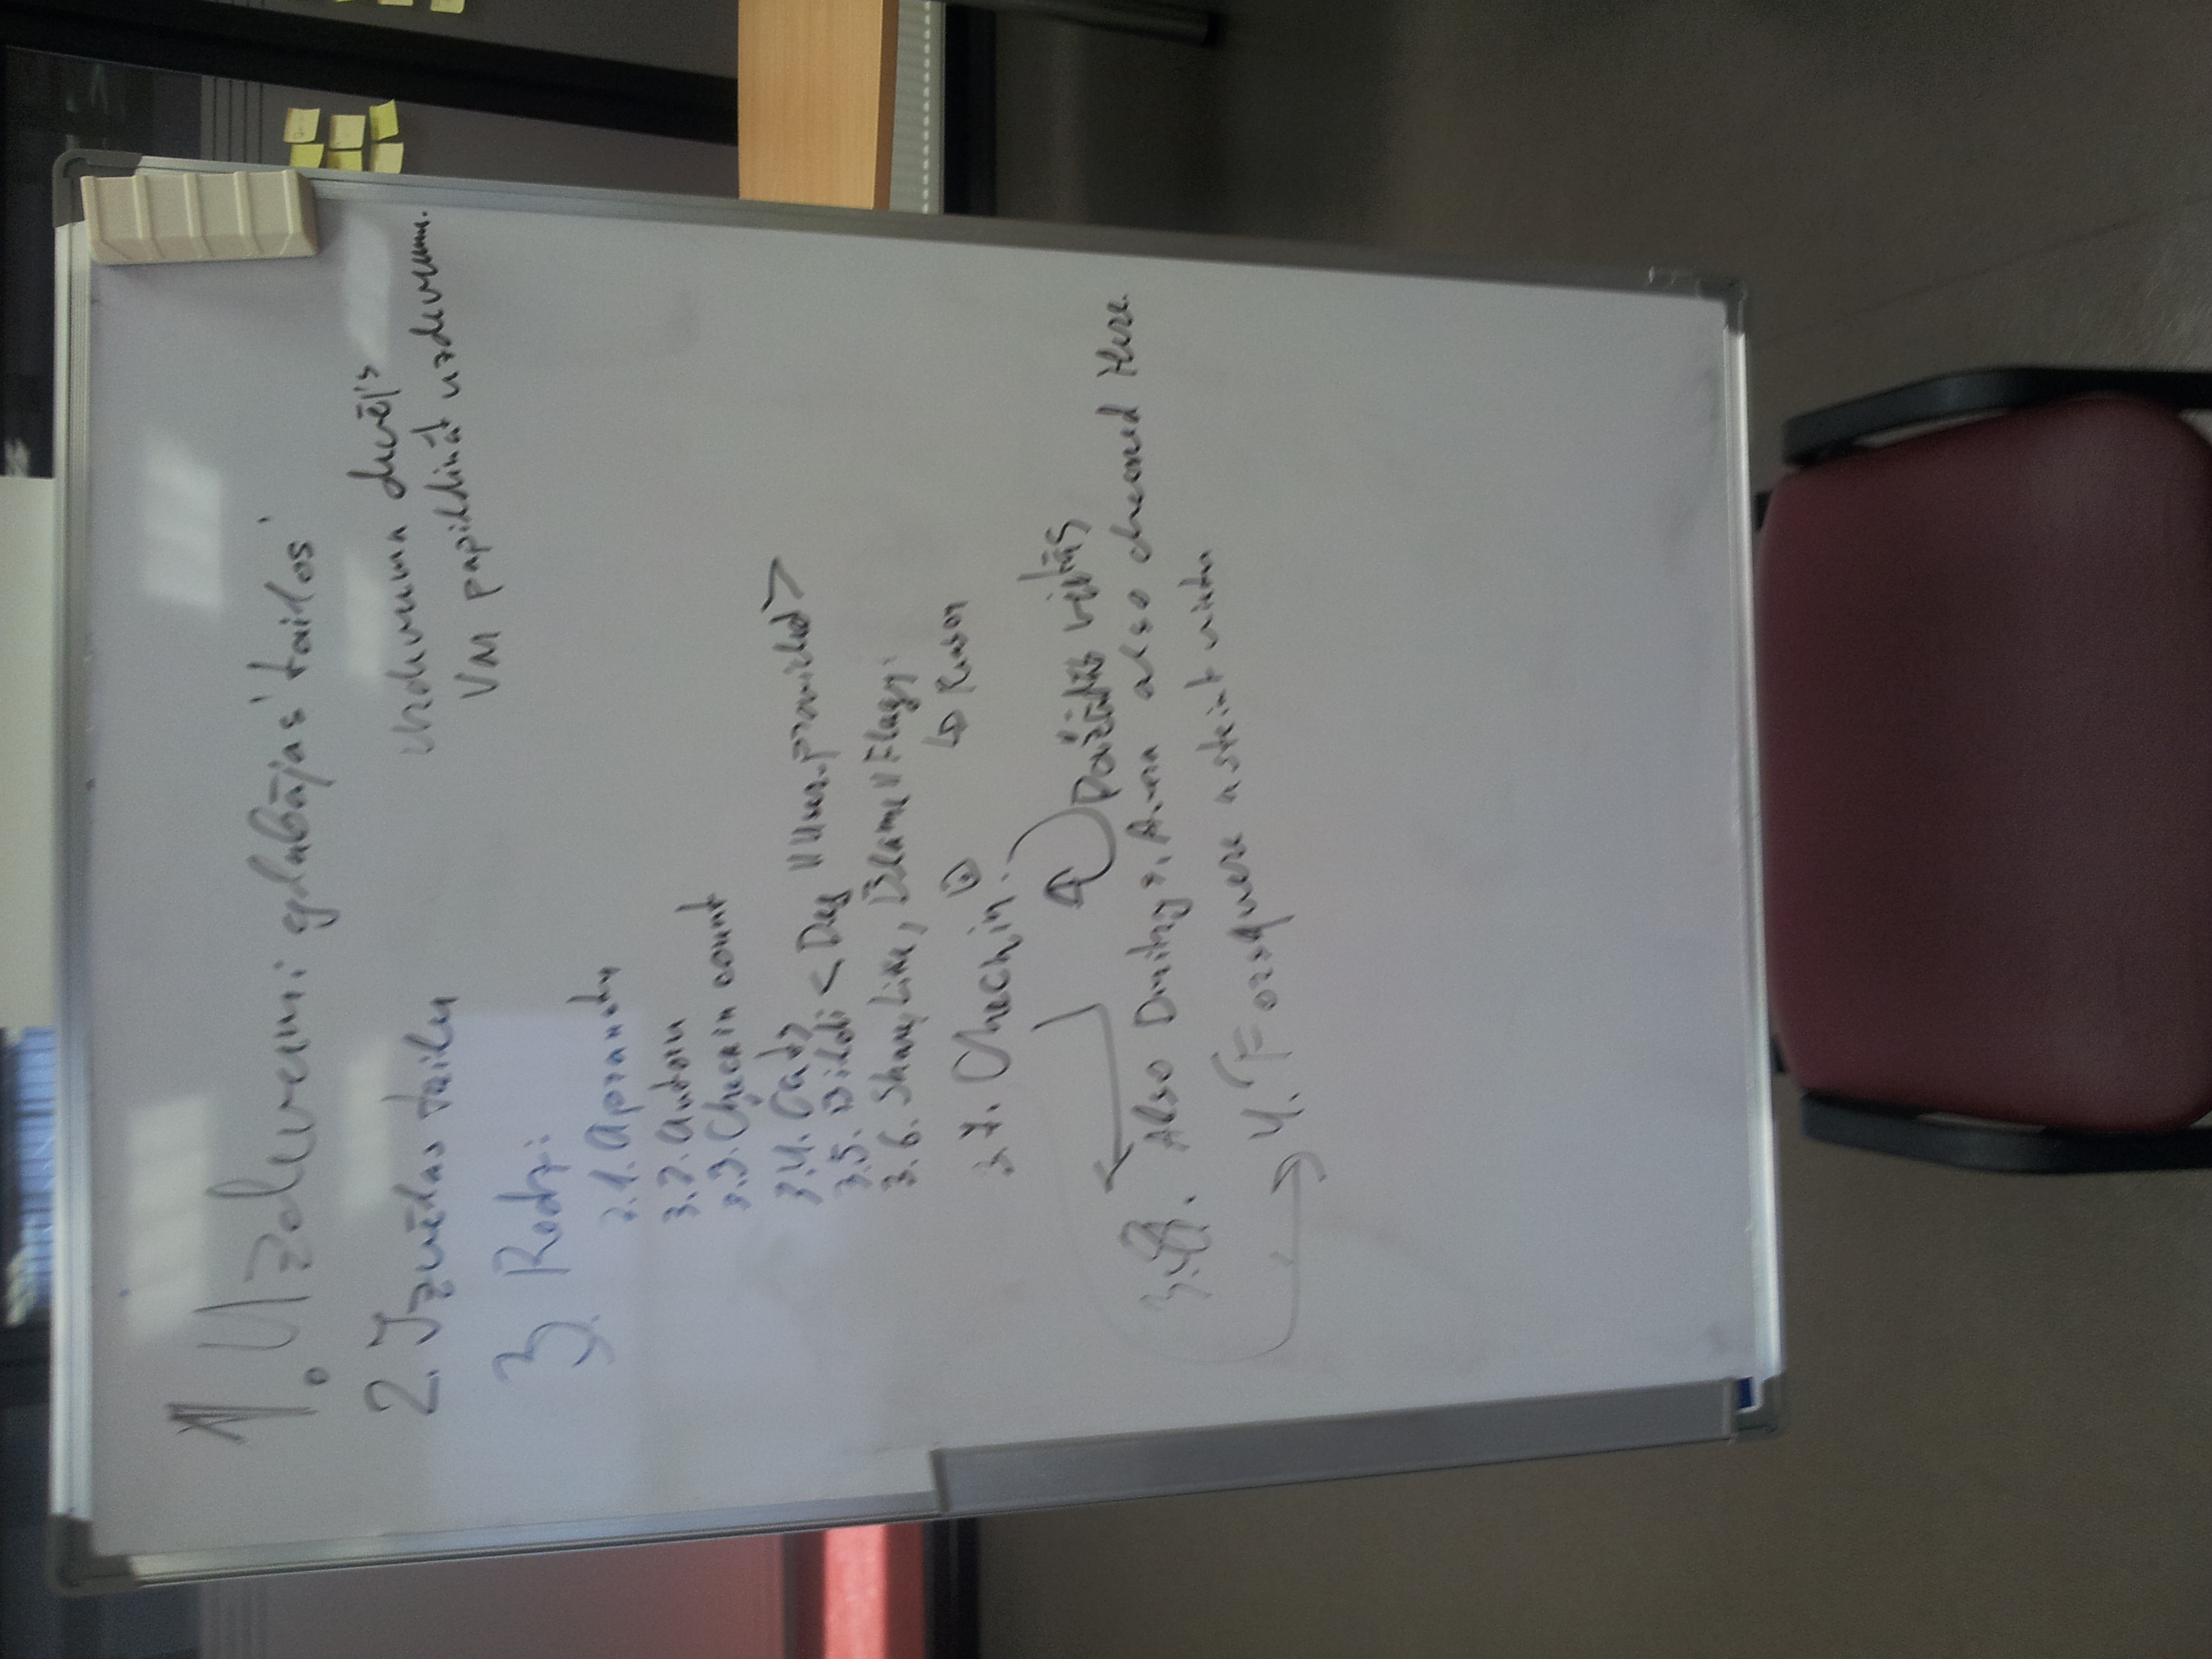 1. Uzdevumi glabājas 'tailos'
2. Izvēlas tailu
uzdevuma devējs
Var papildināt uzdevumu.
3. Redz:
3.1. Aprakstu
3.2. Autoru
3.3. Checkin count
3.4. Čats
3.5. Bildi < Dey "User-provided >
3.6. Share, Like, Blame "Flag":
↳ Reason
3.7. Checkin.
Dažādās vietās
3.8. Also Dmitrijs, Anna also checked Here.
4. Forsquere ieteikt vietu